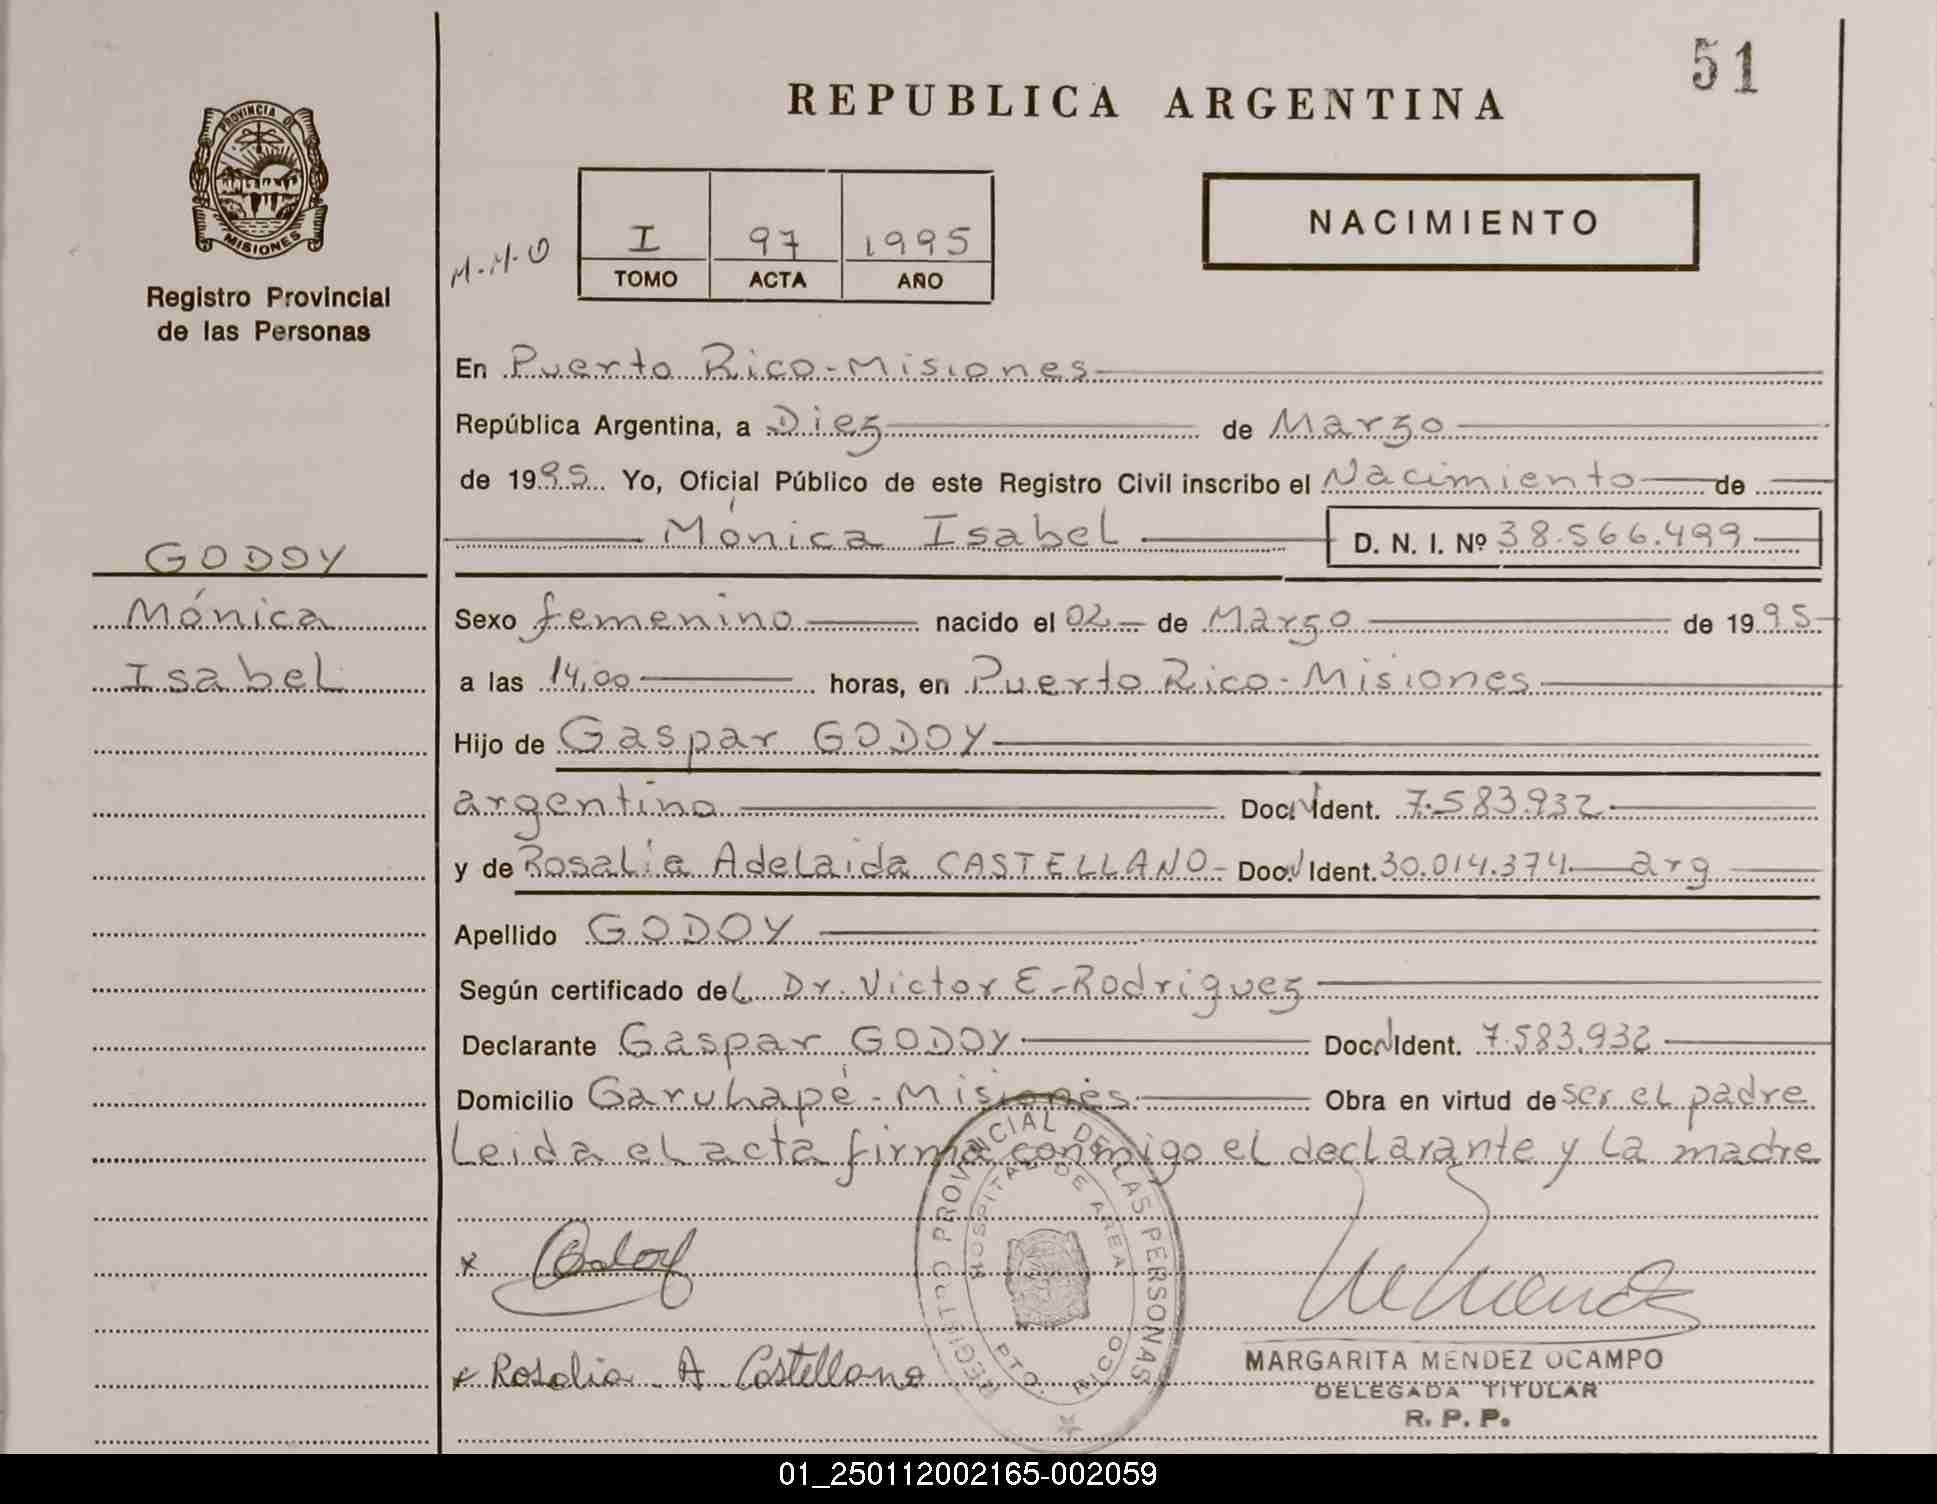 51
REPUBLICA ARGENTINA
PROVINCIA DE
MISIONES
Registro Provincial
de las Personas
M.M.O
I 97 1995
TOMO ACTA AÑO
NACIMIENTO
En Puerto Rico-Misiones
República Argentina, a Diez de Marzo
de 1995 Yo, Oficial Público de este Registro Civil inscribo el Nacimiento de
Mónica Isabel D. N. I. Nº 38.566.499
GODOY
Mónica
Isabel
Sexo femenino nacido el 02 de Marzo de 1995
a las 14,00 horas, en Puerto Rico-Misiones
Hijo de Gaspar GODOY
argentino Doc. N Ident. 7.583.932
y de Rosalía Adelaida CASTELLANO- Doc. N Ident. 30.014.374 arg
Apellido GODOY
Según certificado del Dr. Victor E-Rodriguez
Declarante Gaspar GODOY Doc. N Ident. 7.583.932
Domicilio Garuhapé-Misiones Obra en virtud de ser el padre
Leida el acta firma conmigo el declarante y la madre
x Godoy
x Rosalia A Castellano
REGISTRO PROVINCIAL DE LAS PERSONAS
HOSPITAL DE AREA
PTO. RICO
MARGARITA MENDEZ OCAMPO
DELEGADA TITULAR
R. P. P.
01_250112002165-002059